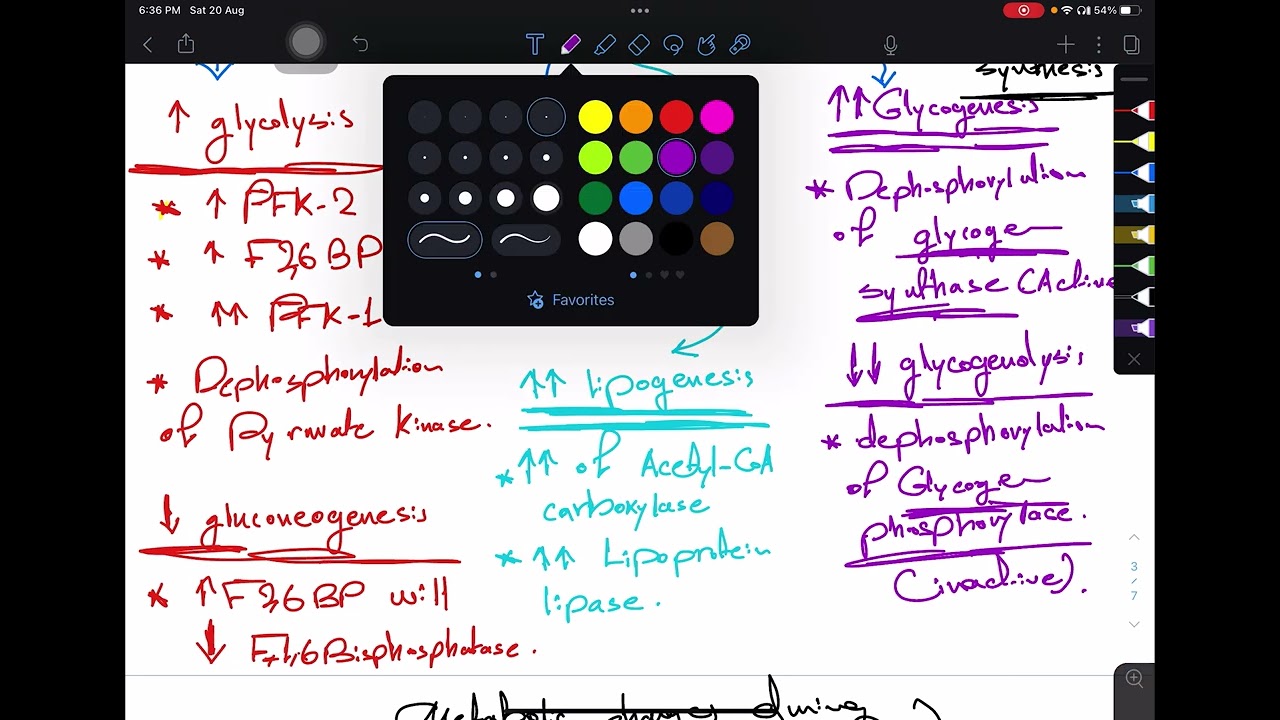 6:36 PM Sat 20 Aug
54%
T
synthesis
↑ glycolysis
* ↑ PFK-2
* ↑ F2,6 BP
* ↑↑ PFK-1
* Dephosphorylation
of Pyruvate Kinase.
↓ gluconeogenesis
* ↑F2,6 BP will
↓ F-1,6 Bisphosphatase.
Favorites
↑↑ lipogenesis
* ↑↑ of Acetyl-CoA
carboxylase
* ↑↑ Lipoprotein
lipase.
↑↑ Glycogenesis
* Dephosphorylation
of glycogen
synthase (Active
↓↓ glycogenolysis
* dephosphorylation
of Glycogen
phosphorylace.
(inactive).
3
/
7
Metabolic changes during